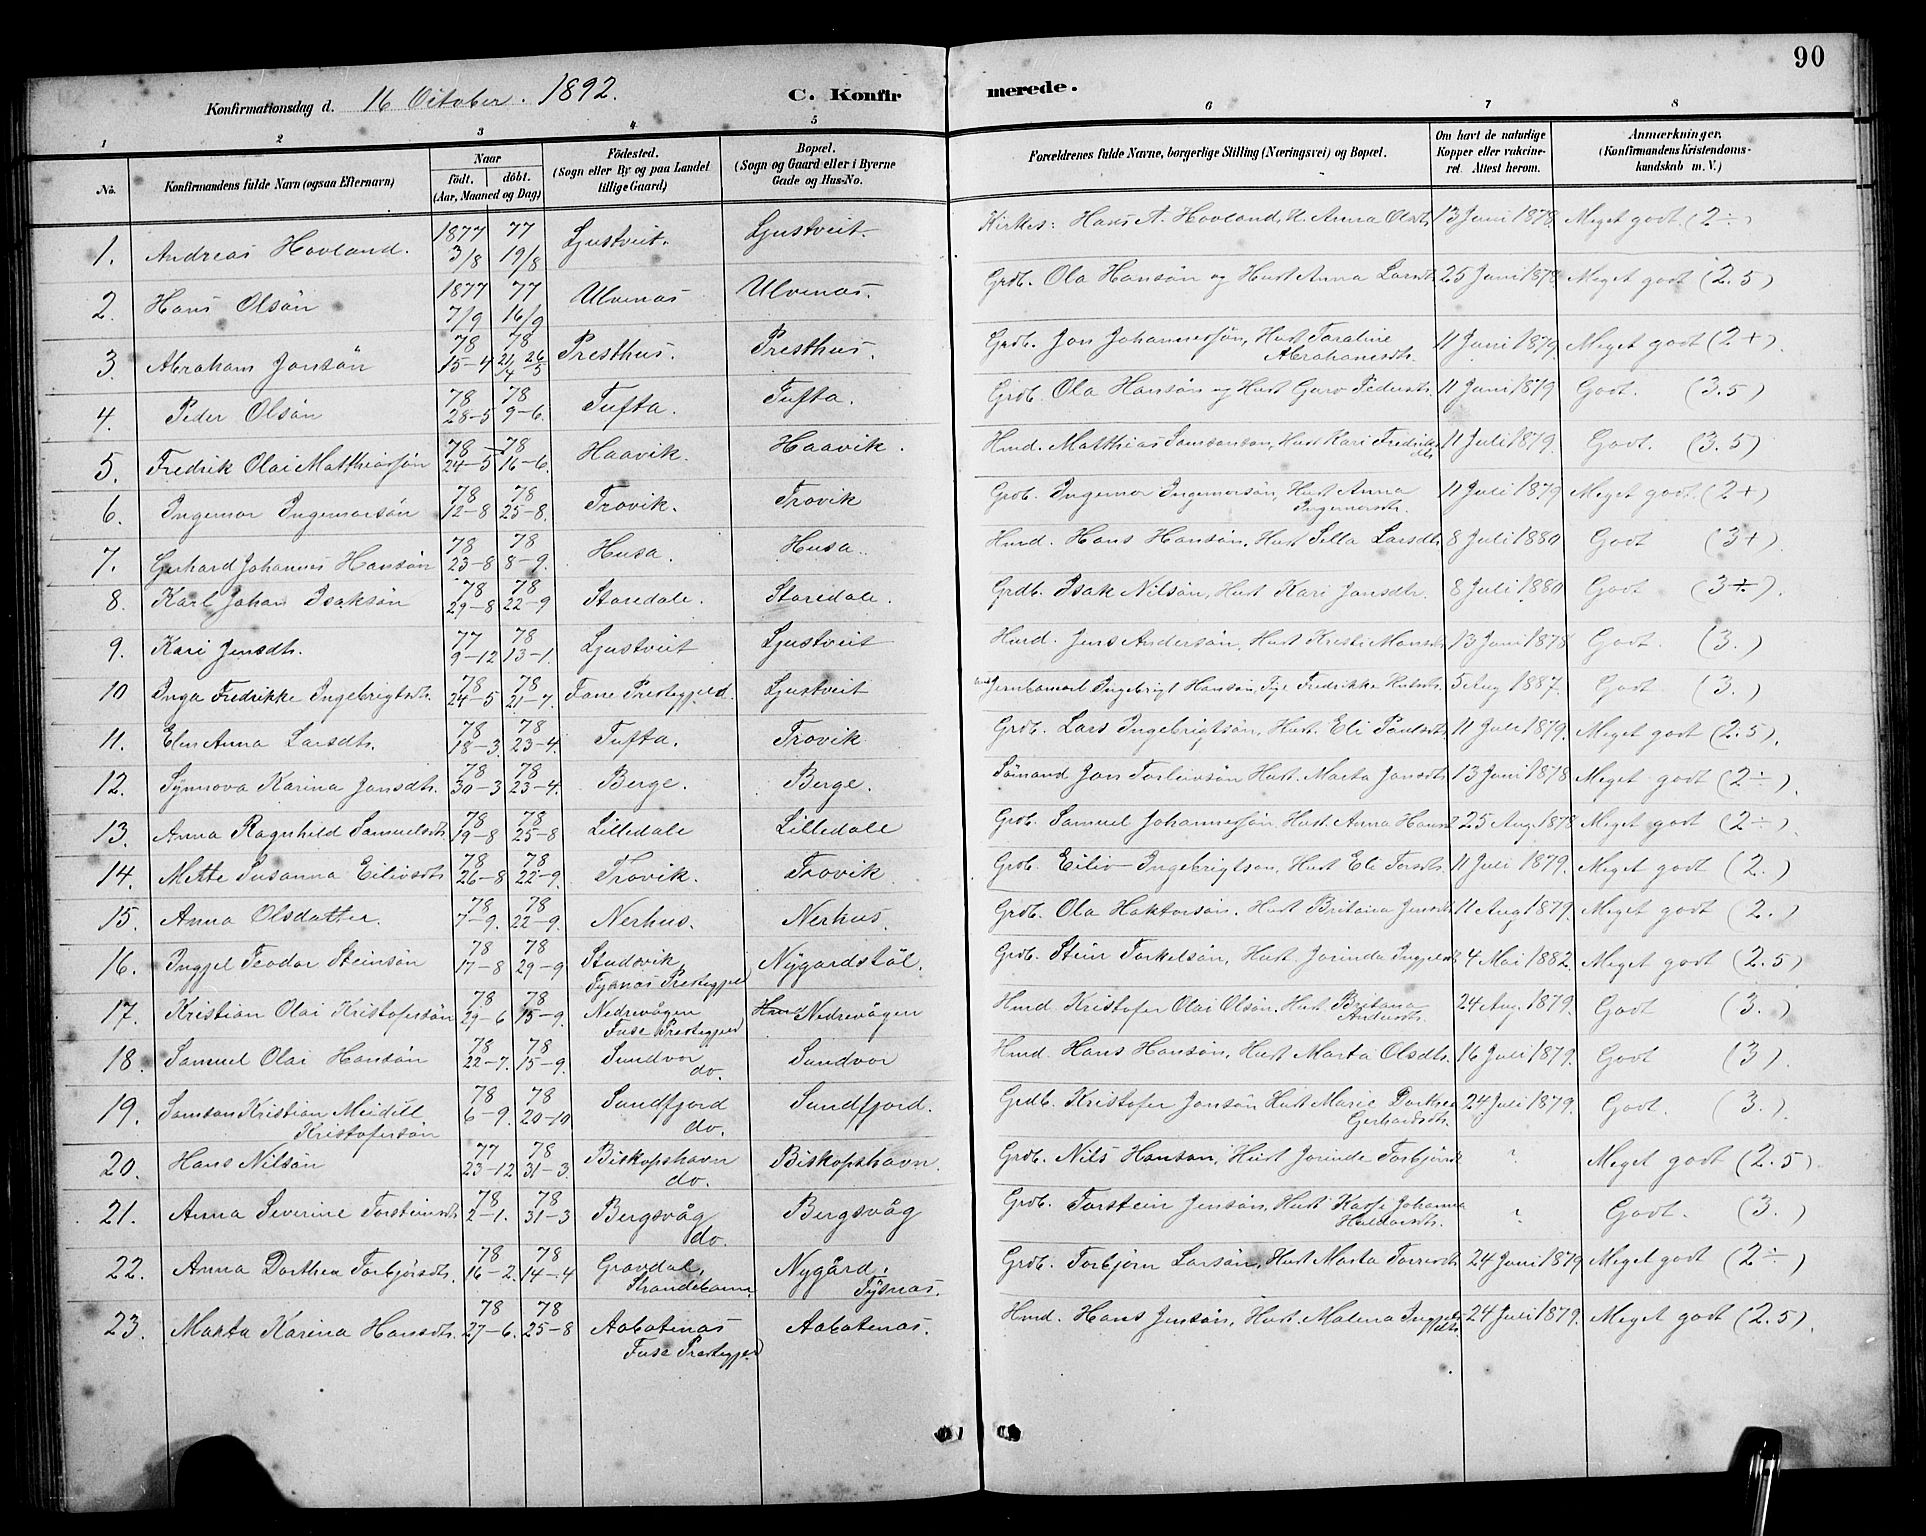 90
Konfirmationsdag d. 16 October. 1892. C. Konfir merede.
1 2 3 4 5 6 7 8
No. Konfirmandens fulde Navn (ogsaa Efternavn) Naar født. døbt. (Aar, Maaned og Dag) Födested. (Sogn eller By og paa Landet tillige Gaard) Bopæl. (Sogn og Gaard eller i Byerne Gade og Hus-No. Forældrenes fulde Navne, borgerlige Stilling (Næringsvei) og Bopæl. Om havt de naturlige Kopper eller vakcineret. Attest herom. Anmærkninger. (Konfirmandens Kristendomskundskab m. V.)
1. Andreas Hovland. 1877 3/8 77 19/8 Ljustveit. Ljustveit. Kirkes: Hans A. Hovland, H. Anna Olsdt. 13 Juni 1878 Meget godt (2÷)
2. Hans Olsön 1877 7/9 77 16/9 Ulvenas Ulvenas. Grdb. Ola Hansön og Hust. Anna Larsdt. 25 Juni 1878 Meget godt (2.5)
3. Abraham Jonsön 78 15-4 78 21/4 26/5 Presthus. Presthus. Grdb. Jon Johannessön, Hust. Taraline Abrahamsdtr. 11 Juni 1879 Meget godt (2+)
4. Peder Olsön 78 28-5 78 9-6. Tufta. Tufta. Grdb. Ola Hansön og Hust Guro Pedersdt. 11 Juni 1879 Godt. (3.5)
5. Fredrik Olai Matthiassön 78 24-5 78 16-6. Haavik. Haavik. Hmd. Matthias Samsonsön, Hust Kari Fredriksdtr 11 Juli 1879. Godt. (3.5)
6. Ingemar Ingemarsön 78 12-8 78 25-8. Trovik. Trovik Grdb. Ingemar Ingemarsön, Hust Anna Ingemarsdtr. 11 Juli 1879 Meget godt. (2+)
7. Gerhard Johannes Hansön 78 23-8 78 8-9. Husa. Husa. Hmd. Hans Hansön, Hust Sella Larsdtr 8 Juli 1880 Godt (3+)
8. Karl Johan Isaksön 78 29-8 78 22-9 Staredale. Staredale. Grdb. Isak Nilsön, Hust Kari Jonsdtr. 8 Juli 1880 Godt (3÷).
9. Kari Jensdtr. 77 9-12 78 13-1. Ljustveit Ljustveit Hmd. Jens Andersön, Hust Kristi Monsdt 13 Juni 1878 Godt (3.)
10 Inga Fredrikke Ingebrigtsdt. 78 24-5 78 21-7. Fane Prestegjeld. Ljustveit Ingebrigt Hansön, Fredrikke 5 Aug 1887. Godt (3.)
11. Elen Anna Larsdtr. 78 18-3 78 23-4. Tufta. Trovik Grdb. Lars Ingebrigtsön, Hust. Eli Paulsdtr 11 Juli 1879. Meget godt (2.5).
12. Synnova Karina Jonsdtr. 78 30-3 78 23-4. Berge. Berge. Sömand Jon Torleivsön Hust. Marta Jonsdtr 13 Juni 1878 Meget godt (2÷).
13. Anna Ragnhild Samuelsdtr 78 19-8 78 25-8 Lilledale Lilledale Grdb. Samuel Johannessön, Hust. Anna Hansdt 25 Aug. 1878 Meget godt (2÷).
14. Mette Susanna Eilivsdtr 78 26-8 78 22-9. Trovik. Trovik Grdb. Eiliv Ingebrigtson, Hust Eli Torsdtr. 11 Juli 1879. Meget godt (2.)
15. Anna Olsdatter. 78 7-9. 78 22-9. Nerhus. Nerhus. Grdb. Ola Haktorsön. Hust Britana Jensdtr 11 Aug 1879. Meget godt (2.)
16. Ingjel Teodor Steinsön 78 17-8 78 29-9 Studsvik Tysnæs Prestegjeld Nygardstöl. Grdb. Stein Torkelsön, Hust. Jorinda Ingjelsdt 4 Mai 1882. Meget godt (2.5)
17. Kristian Olai Kristofersön 78 29-6 78 15-9. Nedrevågen Fuse Prestegjeld Nedrevågen Hmd. Kristofer Olai Olsön, Hust. Britana Andersdtr. 24 Aug. 1879. Godt (3.)
18. Samuel Olai Hansön 78 22-7. 78 15-9. Sundvor do. Sundvor Hmd. Hans Hansön, Hust Marta Olsdtr. 16 Juli 1879. Godt (3)
19. Samson Kristian Meidell Kristofersön 78 6-9. 78 20-10 Sundfjord do. Sundfjord. Grdb. Kristofer Jonsön Hust Marie Dorthea Gerhardsdtr. 24 Juli 1879. Godt. (3.)
20. Hans Nilsön 77 23-12 78 31-3 Biskopshavn do. Biskopshavn. Grdb. Nils Hanson, Hust Jorinde Torbjörsdt ? Meget godt (2.5)
21. Anna Severine Torsteinsdtr 78 2-1. 78 31-3 Bergsvåg do. Bergsvåg Grdb. Torstein Jensön, Hust Johanna Haldorsdtr. ? Godt. (3.)
22. Anna Dorthea Torbjörsdtr. 78 16-2. 78 14-4 Gravdal, Strandebarm Nygård, Tysnæs. Grdb. Torbjörn Larsön, Hust Marta Torresdtr 24 Juni 1879 Meget godt (2÷)
23. Makta Karina Hansdtr. 78 27-6. 78 25-8 Aabotenas Fuse Prestegjeld Aabotenas. Hmd. Hans Jensön, Hust. Malena Ingjelsdtr 24 Juli 1879. Meget godt (2.5).